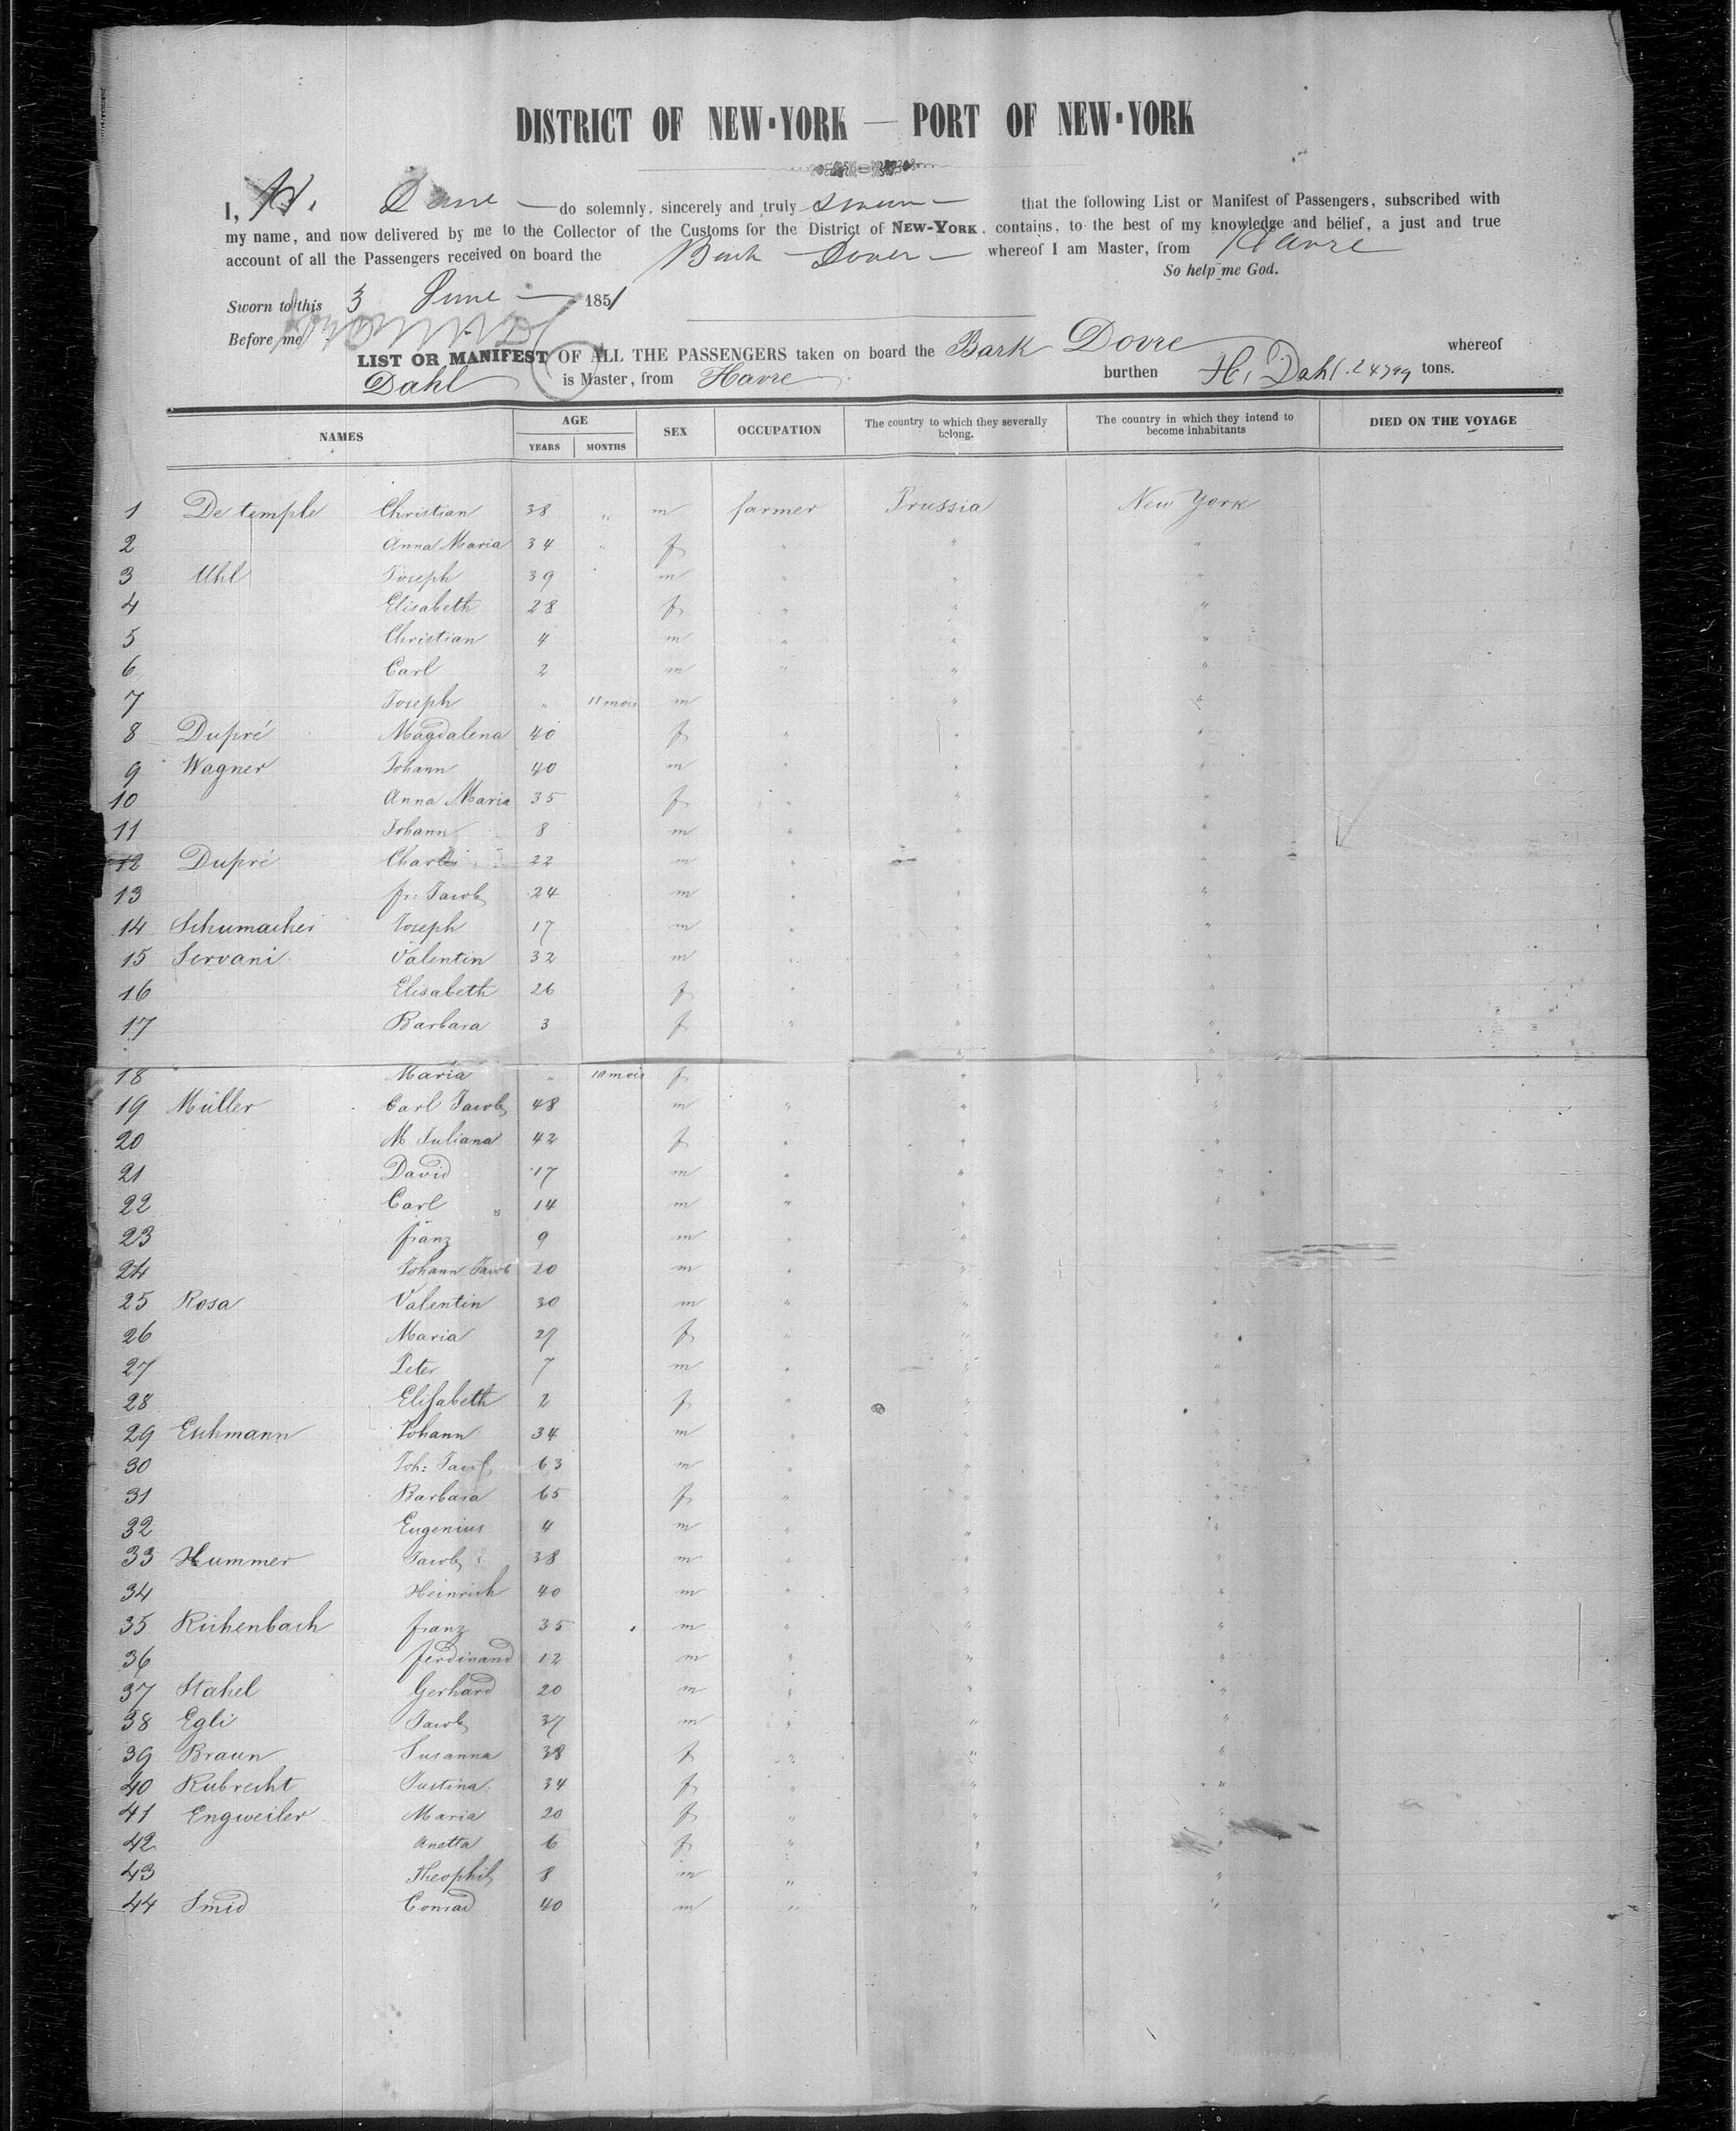 DISTRICT OF NEW-YORK — PORT OF NEW-YORK
I, H. Dane do solemnly, sincerely and truly swear that the following List or Manifest of Passengers, subscribed with
my name, and now delivered by me to the Collector of the Customs for the District of NEW-YORK, contains, to the best of my knowledge and belief, a just and true
account of all the Passengers received on board the Bark Dover whereof I am Master, from Havre
So help me God.
Sworn to this 3 June 1851
Before me
LIST OR MANIFEST OF ALL THE PASSENGERS taken on board the Bark Dovre whereof
Dahl is Master, from Havre burthen H. Dahl. 247 99 tons.
NAMES AGE YEARS MONTHS SEX OCCUPATION The country to which they severally belong. The country in which they intend to become inhabitants DIED ON THE VOYAGE
1 De temple Christian 38 " m farmer Prussia New York
2 Anna Maria 34 " f " " "
3 Uhl Joseph 39 m " " "
4 Elisabeth 28 f " " "
5 Christian 4 m " " "
6 Carl 2 m " " "
7 Joseph " 11 mois m " "
8 Dupré Magdalena 40 f " " "
9 Wagner Johann 40 m " " "
10 Anna Maria 35 f " " "
11 Johann 8 m " " "
12 Dupré Charles 22 m " " "
13 fr: Jacob 24 m " " "
14 Schumacher Joseph 17 m " " "
15 Servani Valentin 32 m " " "
16 Elisabeth 26 f " " "
17 Barbara 3 f " " "
18 Maria " 10 mois f " "
19 Müller Carl Jacob 48 m " " "
20 M Juliana 42 f " " "
21 David 17 m " " "
22 Carl 14 m " " "
23 franz 9 m " " "
24 Johann Jacob 20 m " " "
25 Rosa Valentin 30 m " " "
26 Maria 27 f " " "
27 Peter 7 m " " "
28 Elisabeth 2 f " " "
29 Eichmann Johann 34 m " " "
30 Joh: 63 m " " "
31 Barbara 65 f " " "
32 Eugenius 4 m " " "
33 Hummer Jacob 38 m " " "
34 Heinrich 40 m " " "
35 Richenbach franz 35 m " " "
36 ferdinand 12 m " " "
37 Stahel Gerhard 20 m " " "
38 Egli Jacob 37 m " " "
39 Braun Susanna 38 f " " "
40 Rubrecht Justina 34 f " " "
41 Engweiler Maria 20 f " " "
42 Anetta 6 f " " "
43 Theophil 8 m " " "
44 Smid Conrad 40 m " " "